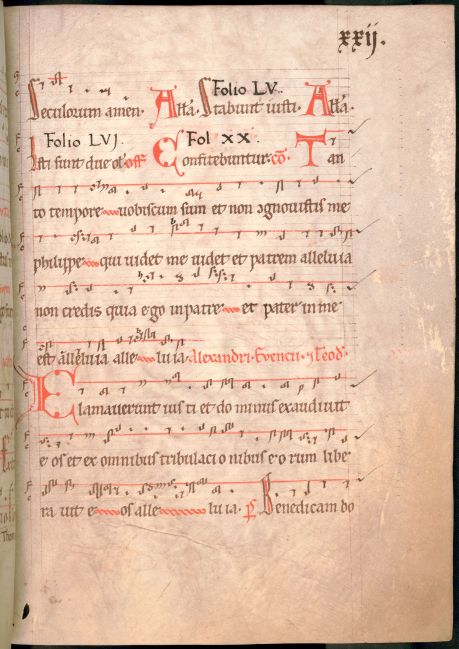 xxij.
Folio LV..
Seculorum amen. Alla. Stabunt iusti. Alla.
Folio LVJ. Fol XX.
Isti sunt due ol' off' Confitebuntur. co. Tan
to tempore uobiscum sum et non cognouistis me
philippe qui uidet me uidet et patrem alleluia
non credis quia ego in patre et pater in me
est alleluia alle luia. Alexandri. Euencii. 7 Teod'
Clamauerunt ius ti et do minus exaudiuit
e os et ex omnibus tribulaci o nibus e o rum libe
ra uit e os alle luia. ps. Benedicam do